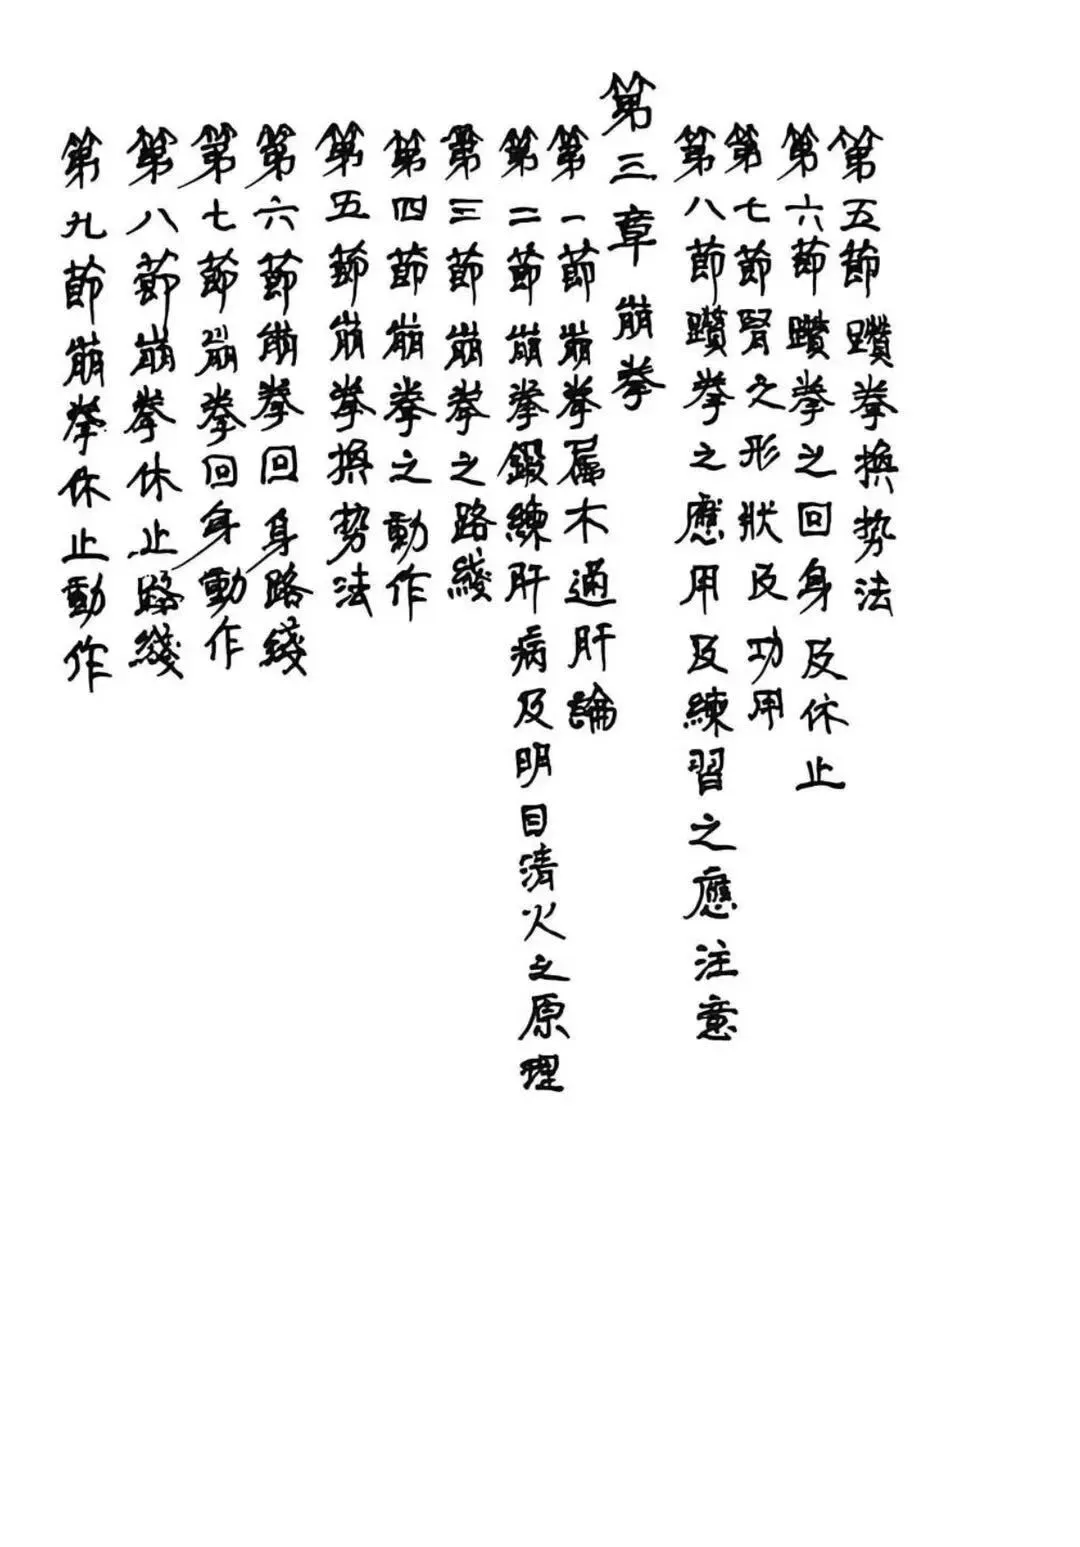 第五節躦拳換势法
第六節躦拳之回身及休止
第七節腎之形狀及功用
第八節躦拳之應用及練習之應注意
第三章崩拳
第一節崩拳属木通肝論
第二節崩拳鍛練肝病及明目清火之原理
第三節崩拳之路綫
第四節崩拳之動作
第五節崩拳換势法
第六節崩拳回身路綫
第七節崩拳回身動作
第八節崩拳休止路綫
第九節崩拳休止動作